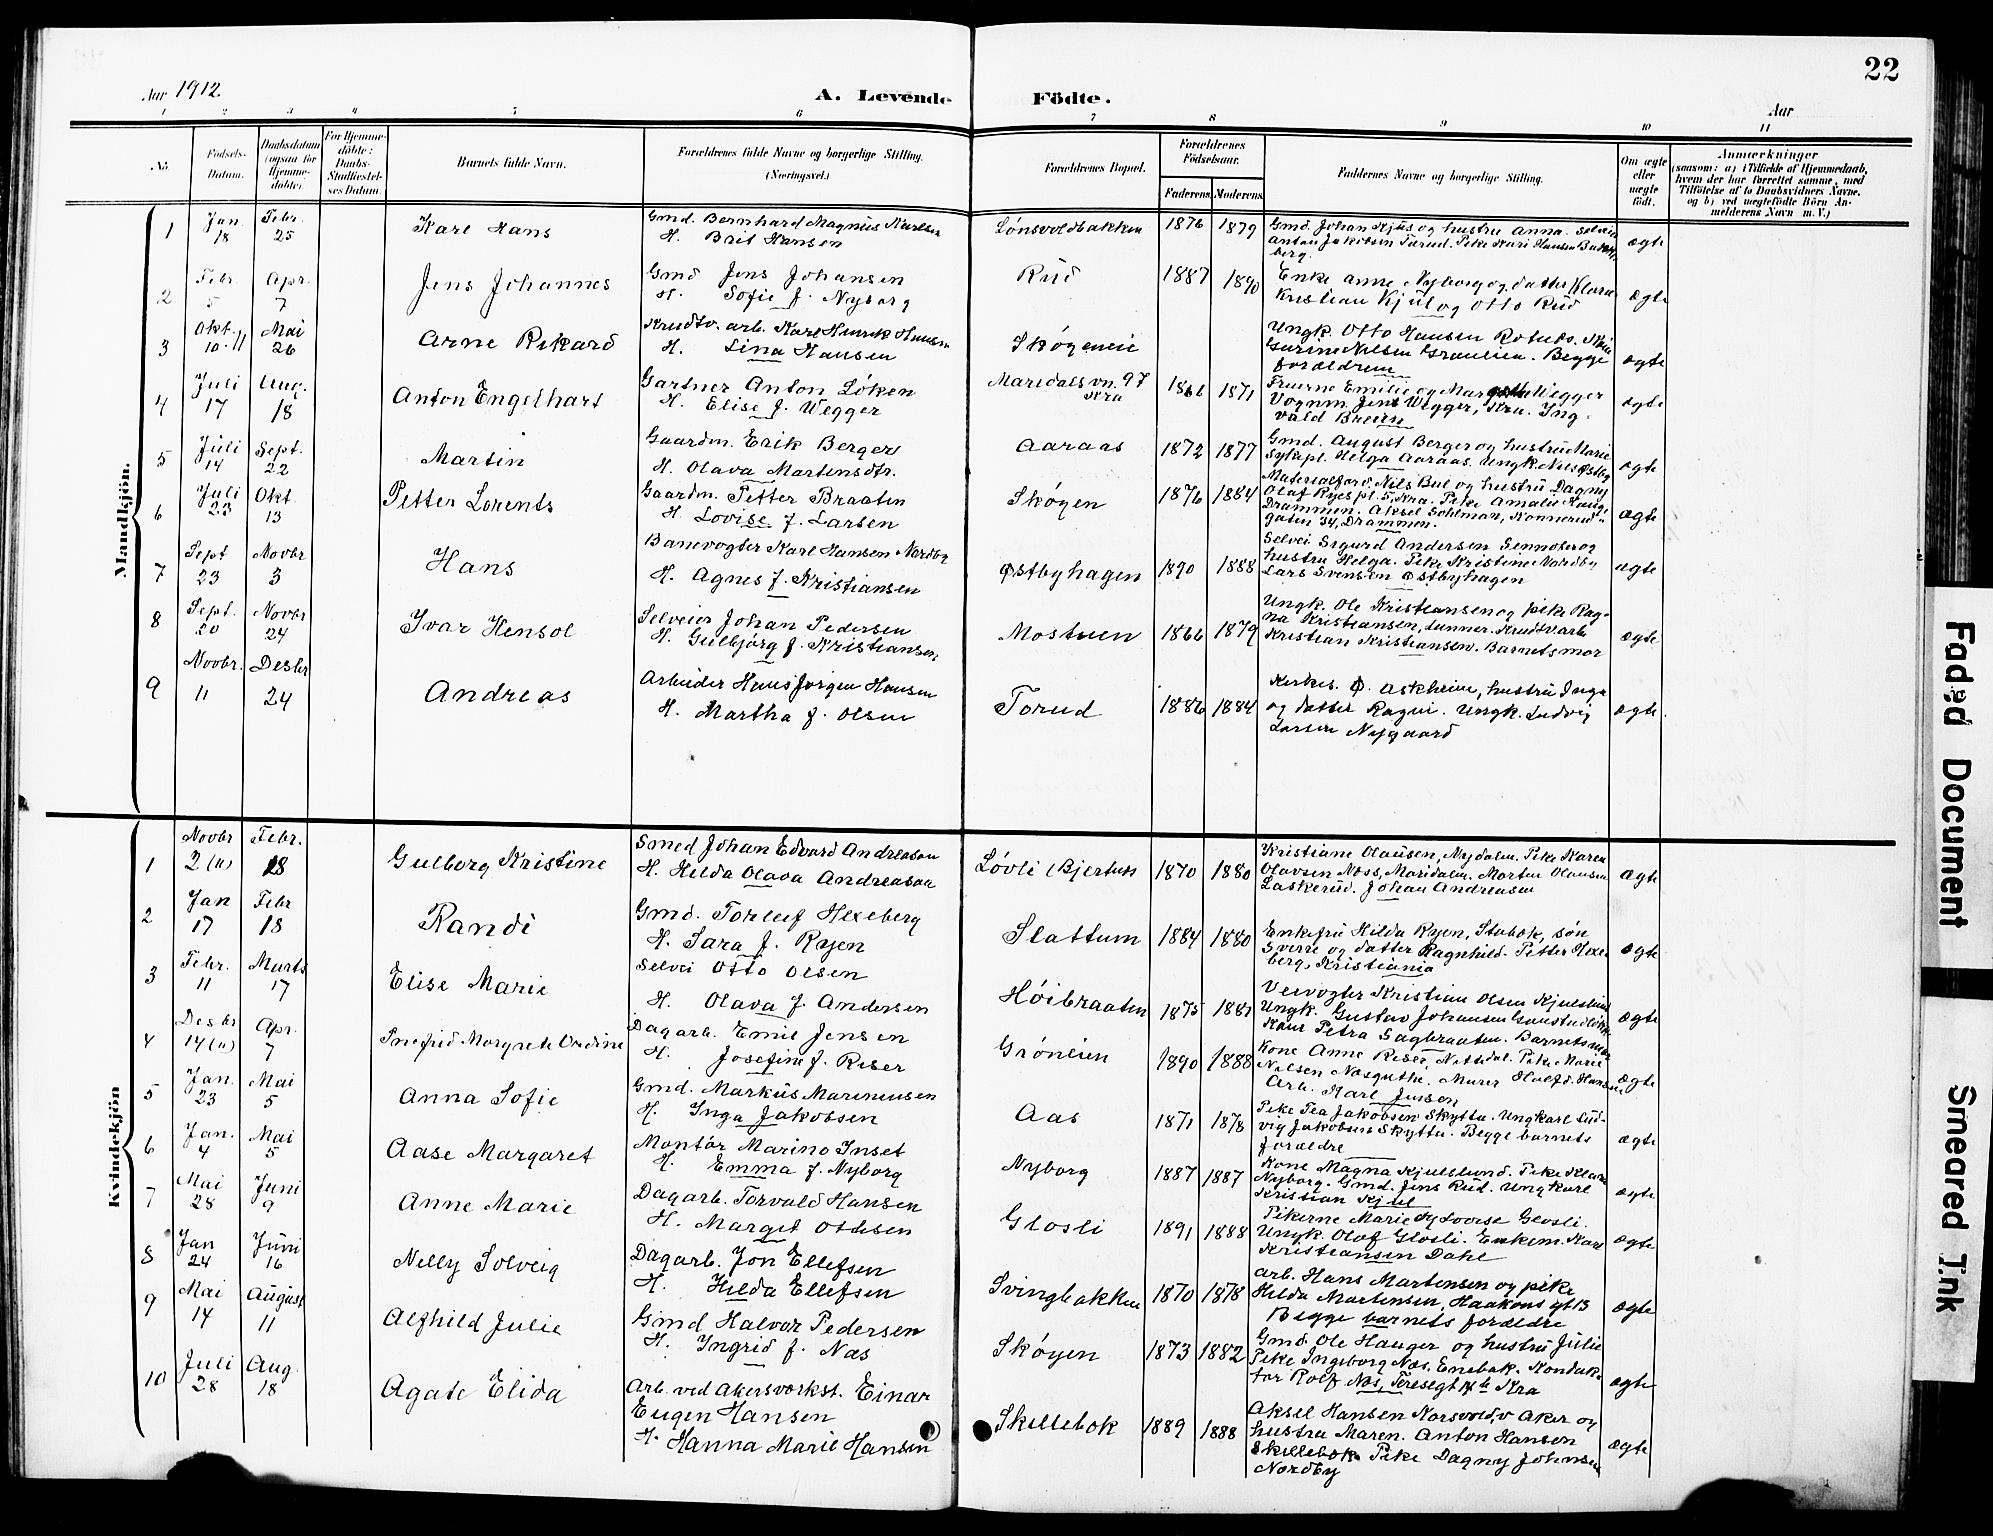 22
Aar 1912.
A. Levende Födte.
Aar
1 2 3 4 5 6 7 8 9 10 11
No.
Födsels-Datum.
Daabsdatum (ogsaa for Hjemmedöbte).
For Hjemmedöbte: Daabs-Stadfæstelses Datum.
Barnets fulde Navn.
Forældrenes fulde Navne og borgerlige Stilling. (Næringsvei.)
Forældrenes Bopæl.
Forældrenes Födselsaar.
Faderens. Moderens.
Faddernes Navne og borgerlige Stilling.
Om ægte eller uægte födt.
Anmærkninger
(saasom: a) i Tilfælde af Hjemmedaab, hvem der har forrettet samme, med Tilföielse af to Daabsvidners Navne, og b) ved uægtefödte Börn Anmelderens Navn m. V.)
Mandkjön.
1 Jan 18 Febr. 25 Karl Hans
Gmd. Bernhard Magnus Karlsen
H. Brit Hansen
Lønsvoldbakken 1876 1879
Gmd. Johan Kjus og hustru Anna. Selveier
Anton Jakobsen Tørud. Pike Kari Hansen Bakke-
berg.
ægte
2 Febr. 5 Apr. 7 Jens Johannes
Gmd Jens Johansen
H. Sofie f. Nyborg
Rud 1887 1890
Enke Anne Nyborg og datter Klara
Kristian Kjul og Otto Rud
ægte
3 Okt. 10. 11 Mai 26 Arne Rikard
Krudtv. arb. Karl Henrik Hansen
H. Lina Hansen
Skøgeneie
Ungk. Otto Hansen
Gurine Nilsen Graulien. Begge
forældrene
ægte
4 Juli 17 Aug. 18 Anton Engelhart
Gartner Anton Løken
H. Elise f. Wegger
Maridalsvn. 97
Kra
1866 1871
Fruerne Emilie og Margrethe Wegger
Vognm. Jens Wegger, Kra. Ing-
vald Breien
ægte
5 Juli 14 Sept. 22 Martin
Gaardm. Erik Berger
H. Olava Martensdtr.
Aaraas 1872 1877
Gmd. August Berger og hustru Marie
Sykepl. Helga Aaraas. Ungk. Nils Østby
ægte
6 Juli 23 Okt. 13 Petter Lorents
Gaardm. Petter Braaten
H. Lovise f. Larsen
Skøyen 1876 1884
Materialforv. Nils Bul og hustru Dagny
Olaf Ryes pl. 5, Kra. Pike Amalie Haug-
Drammen. Aksel Sohlman, Konnerud-
gaten 34, Drammen.
ægte
7 Sept 23 Novbr 3 Hans
Banevogter Karl Hansen Nordby
H. Agnes f. Kristiansen
Østbyhagen 1890 1888
Selvei Sigurd Andersen Sennoter og
hustru Helga. Pike Kristine Nordby
Lars Svensen Østbyhagen
ægte
8 Sept. 20 Novbr 24 Ivar Hensol
Selveier Johan Pedersen
H. Gulbjørg f. Kristiansen
Mostuen 1866 1879
Ungk. Ole Kristiansen og pike Rag-
na Kristiansen, tunner. Krudtvarb
Kristian Kristiansen. Barnets mor
ægte
9 Novbr. 11 Desbr 24 Andreas
Arbeider Hans Jørgen Hansen
H. Martha f. Olsen
Torud 1886 1884
Kirkes. O. Askheim, hustru Inga
og datter Ragni. Ungk. Ludvig
Larsen Nygaard
ægte.
Kvindekjön
1 Novbr 2 (11) Febr. 18 Gulborg Kristine
Smed Johan Edvard Andreasen
H. Hilda Olava Andreasen
Løvli (Bjertnes 1870 1880
Kristiane Olausen, Nydalen. Pike Karen
Olavsen Næss, Maridalen. Morten Olausen
Laskerud. Johan Andreasen
ægte
2 Jan 17 Febr 18 Randi
Gmd. Torleif Hexeberg
H. Sara f. Ryen
Slattum 1884 1880
Enkefru Hilda Ryen, Stabæk, søn
Sverre og datter Ragnhild. Petter Hexe-
berg, Kristiania
ægte
3 Febr. 11 Marts 17 Elise Marie
Selvei Otto Olsen
H. Olava f. Andersen
Høibraaten 1875 1881
Veivogter Kristian Olsen Kjulslund
Ungk. Gustav Johansen
Kone Petra Sagbraaten. Barnets mor
ægte
4 Desbr 14 (11) Apr. 7 Ingfrid Margrete Undine
Dagarb. Emil Jensen
H. Josefine f. Riser
Grønlien 1890 1888
Kone Anne Riser, Nittedal. Pike Marie
Nilsen Næsguthe. Murer Halfd. Hansen
Arb. Karl Jensen
ægte
5 Jan. 23 Mai 5 Anna Sofie
Gmd. Markus Mareniusen
H. Inga Jakobsen
Aas 1871 1878
Pike Tea Jakobsen Skytta. Ungkarl Lud-
vig Jakobsen Skytta. Begge barnets
forældre
ægte
6 Jan. 4 Mai 5 Aase Margaret
Montør Marino Inset
H. Emma f. Nyborg
Nyborg 1887 1887
Kone Magna Kjulslund. Pike Klara
Nyborg. Gmd. Jens Rud. Ungkarl
Kristian Kjul
ægte
7 Mai 28 Juni 9 Anne Marie
Dagarb. Torvald Hansen
H. Marget Ottesen
Glosli 1891 1888
Pikerne Marie og Lovise Glosli.
Ungk. Olaf Glosli. Enkem. Karl
Kristiansen Dahl
ægte
8 Jan 24 Juni 16 Nelly Solveig
Dagarb. Jon Ellefsen
H. Hilda Ellefsen
Svingbakken 1870 1878
Arb. Hans Martensen og pike
Hilda Martensen, Haakons gt 13
Begge barnets forældre
ægte
9 Mai 14 August 11 Alfhild Julie
Gmd Halvor Pedersen
H. Ingrid f. Næs
Skøyen 1873 1882
Gmd. Ole Hauger og hustru Julie
Pike Ingeborg Næs, Enebak. Konduk-
tør Rolf Næs, Teresegt 14b Kra
ægte
10 Juli 28 Aug. 18 Agate Elida
Arb. ved Akersværkst. Einar
Eugen Hansen
H. Hanna Marie Hansen
Skillebæk 1889 1888
Aksel Hansen Norsvold, v Aker og
hustru Maren. Anton Hansen
Skillebæk Pike Dagny Johnsen
Nordby
ægte
Faded Document
Smeared Ink